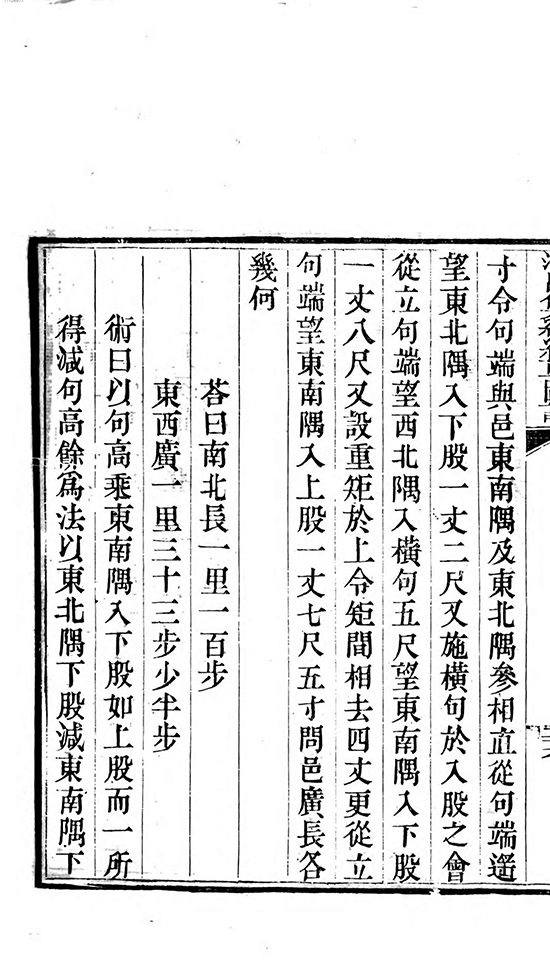 寸令句端與邑東南隅及東北隅參相直從句端遥
望東北隅入下股一丈二尺又施橫句於入股之會
從立句端望西北隅入橫句五尺望東南隅入下股
一丈八尺又設重矩於上令矩間相去四丈更從立
句端望東南隅入上股一丈七尺五寸問邑廣長各
幾何
荅曰南北長一里一百步
東西廣一里三十三步少半步
術曰以句高乘東南隅入下股如上股而一所
得減句高餘爲法以東北隅下股減東南隅下